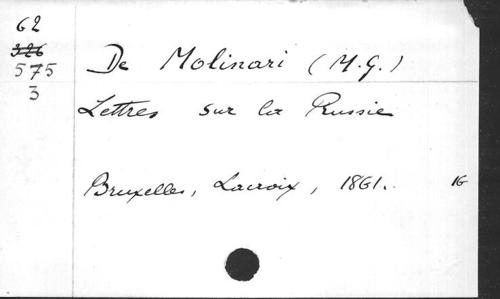 62
326
575
3
De Molinari (M.G.)
Lettres sur la Russie
Bruxelles, Lacroix, 1861. 16